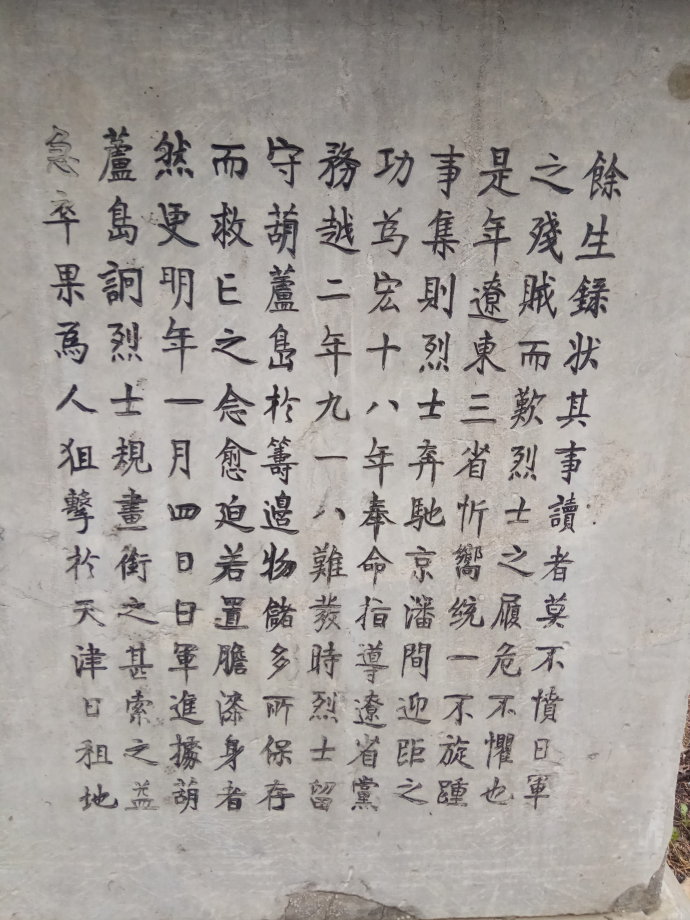 餘生錄狀其事讀者莫不憤日軍
之殘賊而歎烈士之履危不懼也
是年遼東三省忻嚮統一不旋踵
事集則烈士奔馳京瀋間迎距之
功為宏十八年奉命指導遼省黨
務越二年九一八難發時烈士留
守葫蘆島於籌邊物儲多所保存
而救亡之念愈迫若置膽漆身者
然更明年一月四日日軍進據葫
蘆島詗烈士規畫銜之甚索之益
急卒果為人狙擊於天津日租地